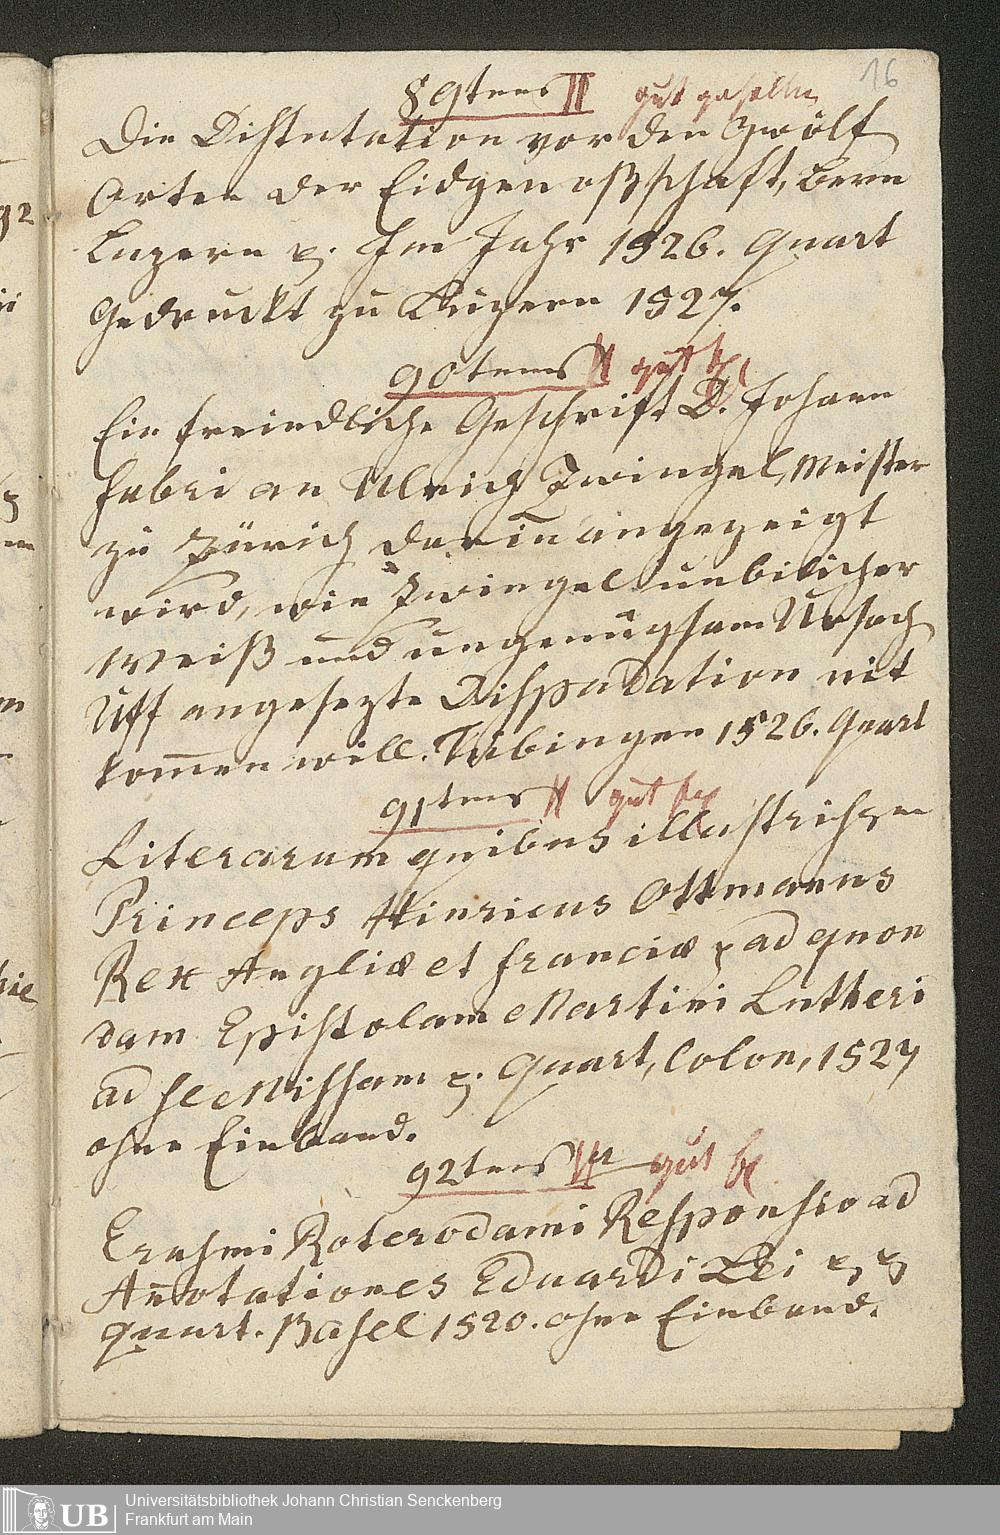 16
89tens II gut gehalten
Die Distutation vor den Zwölf
Orten der Eidgenoßschaft, Bern
Luzern p. Im Jahr 1526. Quart
Gedruckt zu Luzern 1527.
90tens gut
Ein freindliche Geschrift D. Johann
Fabri an Ulrich Zwingel, Meister
zu Zürich darin̄ angezeigt
wird, wie Zwingel unbilicher
Weiß und ungenugsam Ursach
Uff angesezte Dispudation nit
kom̄en will. Tübingen 1526. Quart
91tens gut
Literarum quibus illustrihsm
Princeps Hinricus Ottmanns
Rex Angliæ et franciæ p ad quon
dam Epistolam Martini Lutheri
ad se Missam p. Quart, Colon, 1527
ohne Einband.
92tens gut
Erasmi Roterodami Responsio ad
An̄otationes Eduardi Lei
quart. Basel 1520. ohne Einband.
UB
Universitätsbibliothek Johann Christian Senckenberg
Frankfurt am Main